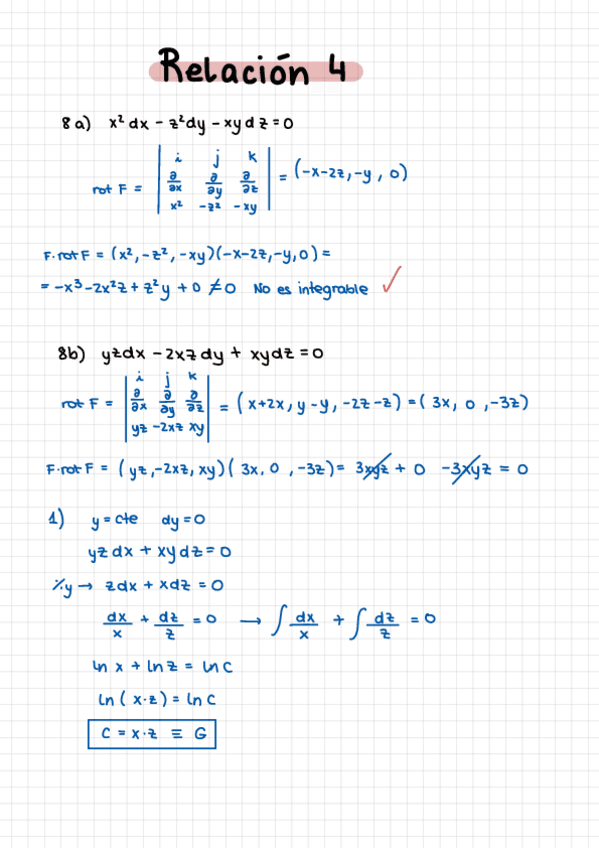 Relación 4
8a) x² dx - z² dy - xy dz = 0
rot F = | i j k | = (-x-2z, -y, 0)
∂/∂x ∂/∂y ∂/∂z
x² -z² -xy
F·rot F = (x², -z², -xy)(-x-2z, -y, 0) =
= -x³-2x²z + z²y + 0 ≠ 0 No es integrable ✓
8b) yzdx - 2xz dy + xydz = 0
rot F = | i j k | = (x+2x, y-y, -2z-z) = (3x, 0, -3z)
∂/∂x ∂/∂y ∂/∂z
yz -2xz xy
F·rot F = (yz, -2xz, xy)(3x, 0, -3z) = 3xyz + 0 - 3xyz = 0
1) y = cte dy = 0
yz dx + xy dz = 0
٪y → zdx + xdz = 0
dx/x + dz/z = 0 → ∫ dx/x + ∫ dz/z = 0
ln x + ln z = ln C
ln (x·z) = ln C
C = x·z ≡ G